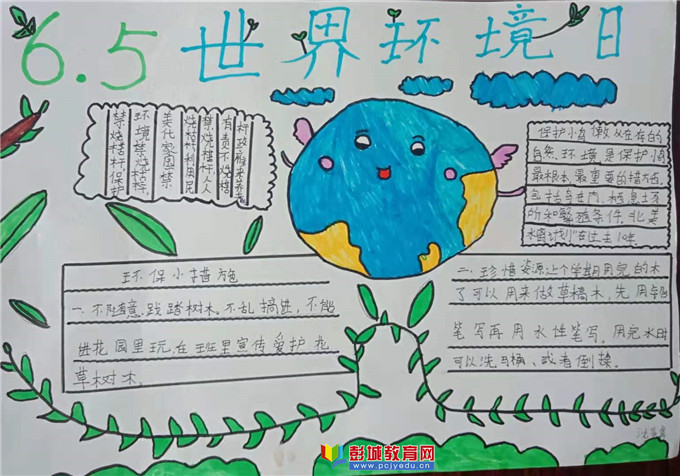 6.5世界环境日
禁烧秸秆保护
环境禁烧秸秆
美化家园禁
烧秸秆利
禁烧秸秆人人
有责不烧秸
秆政府来养老
保护小鸟
自然环境是保护小鸟
最根本最重要的措施。
包括
所和繁殖条件。北美
环保小措施
一.不随意践踏树木。不乱摘 不能
进花园里玩,在班里宣传爱护花
草树木。
二.珍惜资源 个学期用完的本
了可以用来做草稿本,先用铅
笔写再用水性笔写。用完水时
可以洗马桶、或者倒掉。
彭城教育网
www.pcjyedu.cn